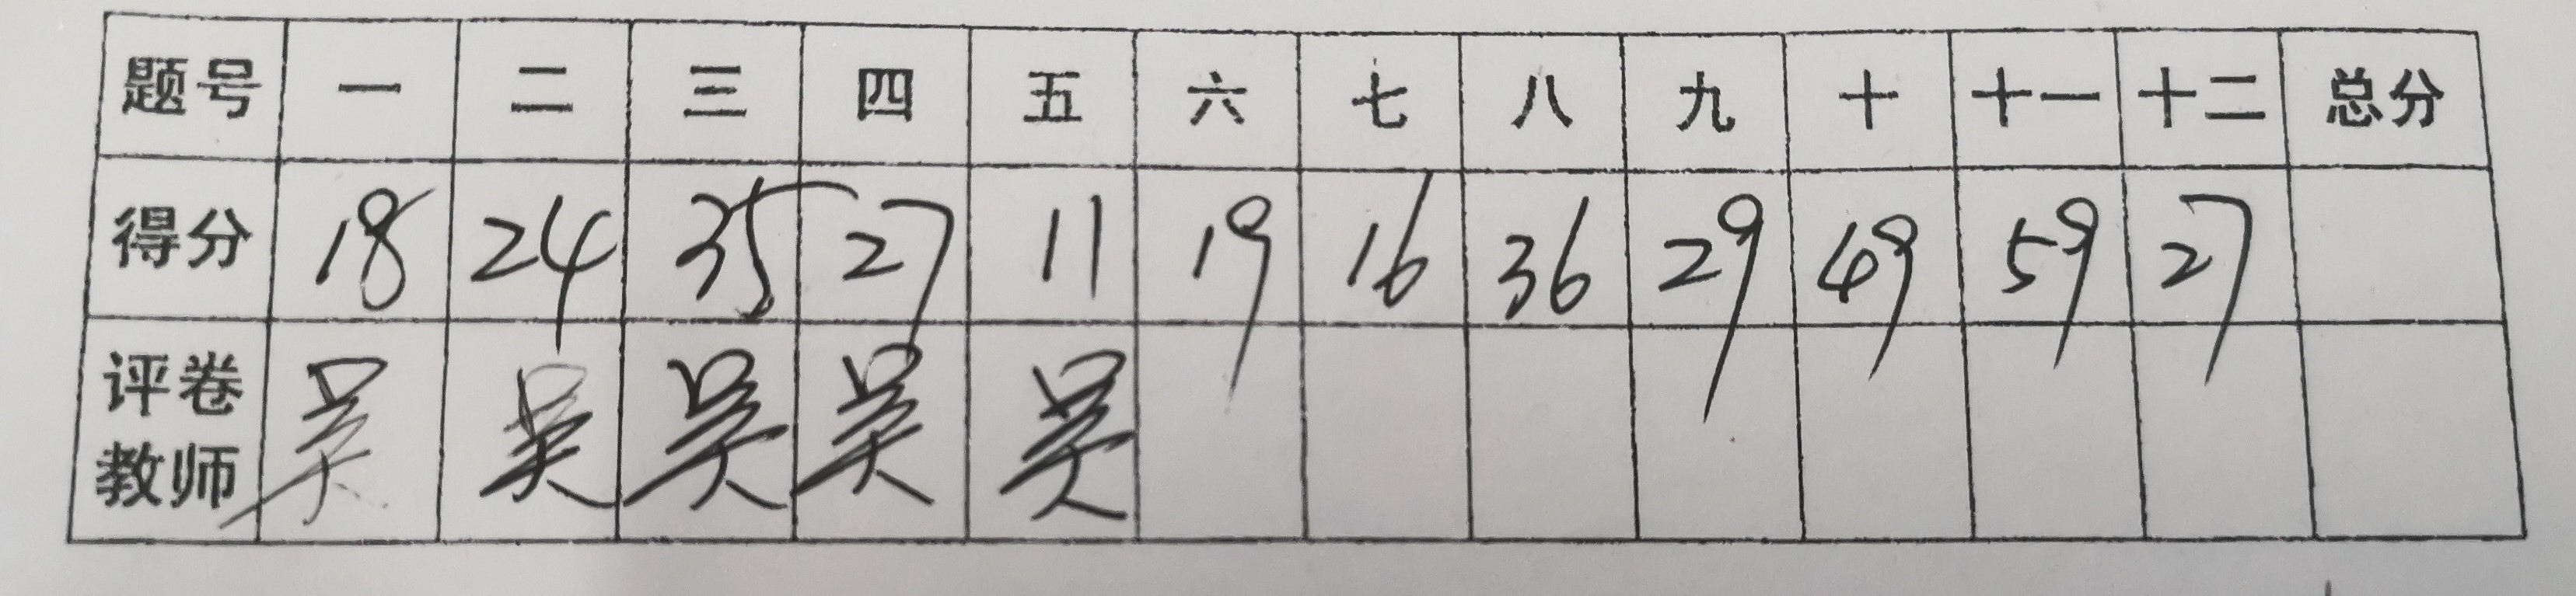 题号 一 二 三 四 五 六 七 八 九 十 十一 十二 总分
得分 18 24 35 27 11 19 16 36 29 49 59 27
评卷 吴 吴 吴 吴 吴
教师